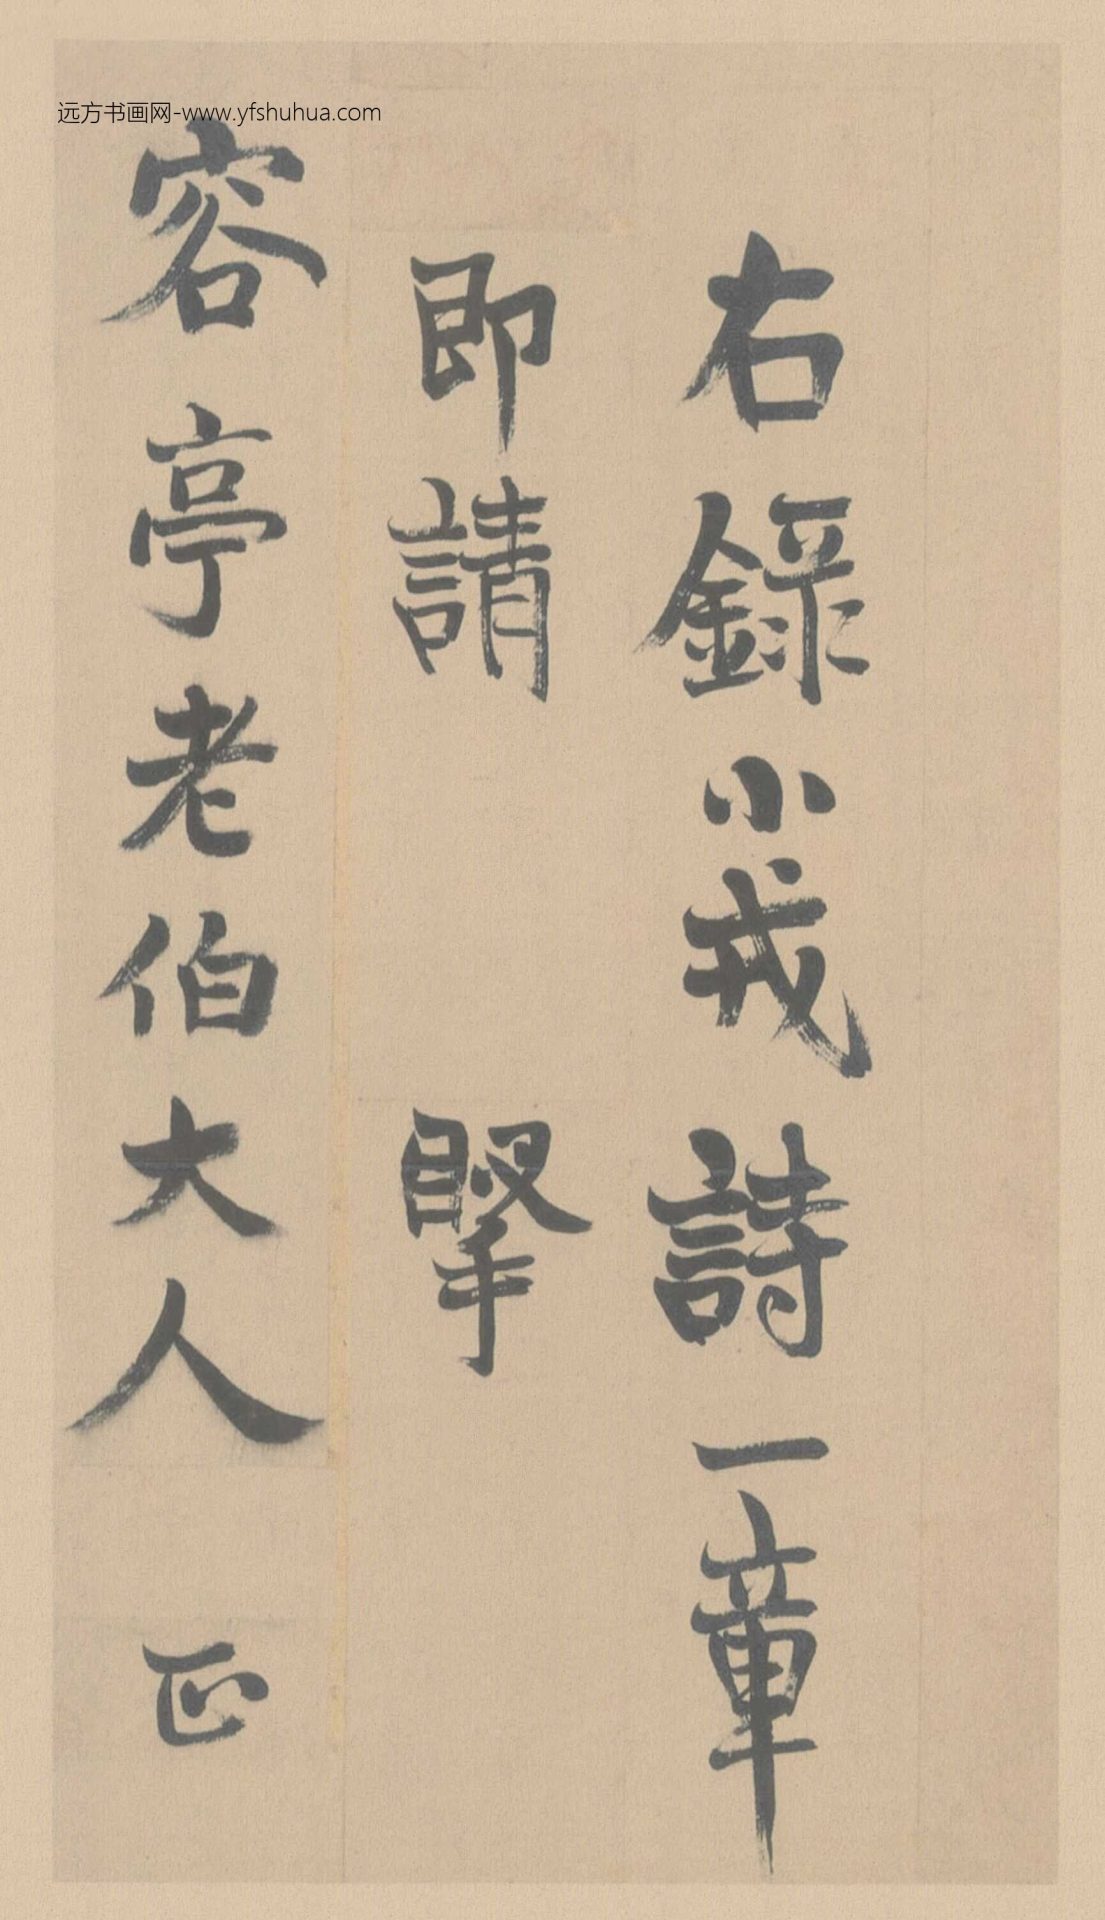 远方书画网-www.yfshuhua.com
右錄小戎詩一章
即請
容亭老伯大人 正